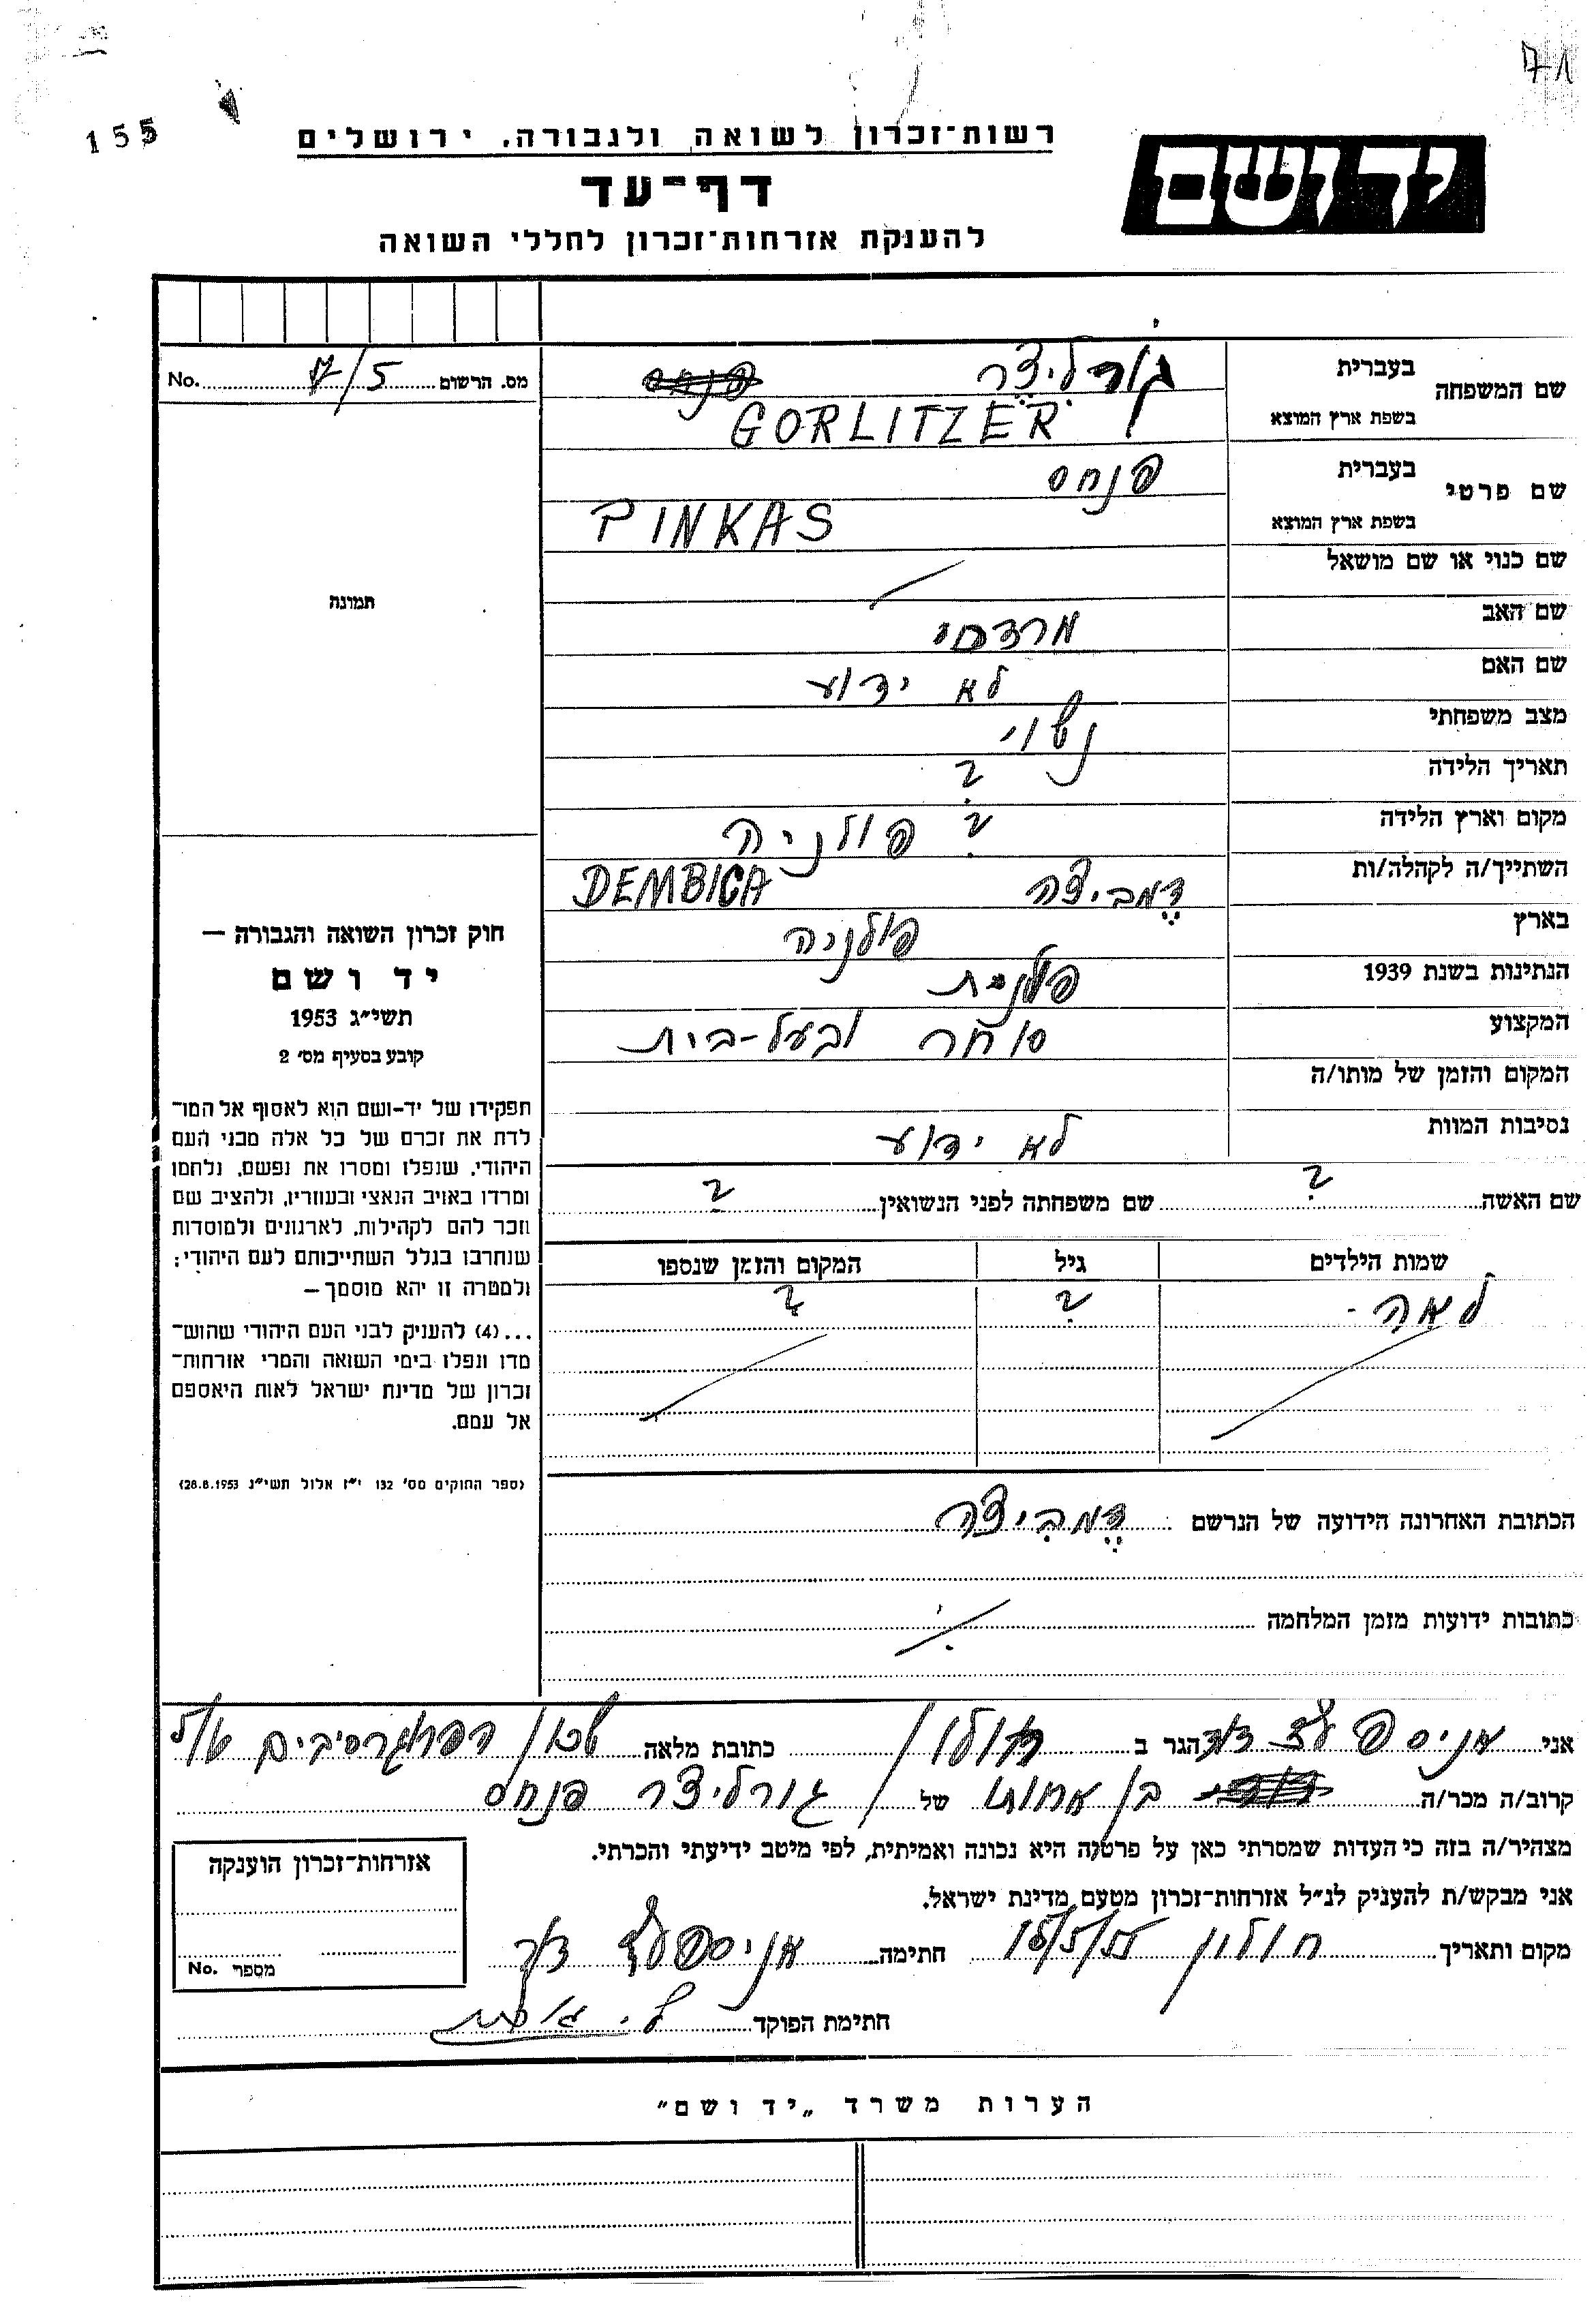 71
155
יד ושם
רשות־זכרון לשואה ולגבורה. ירושלים
דף־עד
להענקת אזרחות־זכרון לחללי השואה
מס. הרשום 7/5 No.
שם המשפחה
בעברית גורליצר
בשפת ארץ המוצא GORLITZER
שם פרטי
בעברית פנחס
בשפת ארץ המוצא PINKAS
שם כנוי או שם מושאל
שם האב מרדכי
שם האם לא ידוע
מצב משפחתי נשוי
תאריך הלידה ?
מקום וארץ הלידה ? פולניה
השתייך/ה לקהלה/ות דמביצה DEMBICA
בארץ פולניה
הנתינות בשנת 1939 פולנית
המקצוע סוחר ובעל-בית
המקום והזמן של מותו/ה
נסיבות המוות לא ידוע
שם האשה ? שם משפחתה לפני הנשואין ?
שמות הילדים גיל המקום והזמן שנספו
לאה - ? ?
הכתובת האחרונה הידועה של הנרשם דמביצה
כתובות ידועות מזמן המלחמה
תמונה
חוק זכרון השואה והגבורה —
יד ושם
תשי״ג 1953
קובע בסעיף מס׳ 2
תפקידו של יד-ושם הוא לאסוף אל המו־
לדת את זכרם של כל אלה מבני העם
היהודי, שנפלו ומסרו את נפשם, נלחמו
ומרדו באויב הנאצי ובעוזריו, ולהציב שם
וזכר להם לקהילות, לארגונים ולמוסדות
שנחרבו בגלל השתייכותם לעם היהודי;
ולמטרה זו יהא מוסמך —
...(4) להעניק לבני העם היהודי שהוש־
מדו ונפלו בימי השואה והמרי אזרחות־
זכרון של מדינת ישראל לאות היאספם
אל עמם.
(ספר החוקים מס׳ 132 י״ז אלול תשי״ג 28.8.1953)
אני הגר ב חולון כתובת מלאה שכון הפרוגרסיבים
קרוב/ה מכר/ה בן אחותו של גורליצר פנחס
מצהיר/ה בזה כי העדות שמסרתי כאן על פרטיה היא נכונה ואמיתית, לפי מיטב ידיעתי והכרתי.
אני מבקש/ת להעניק לנ״ל אזרחות־זכרון מטעם מדינת ישראל.
מקום ותאריך חולון חתימה
חתימת הפוקד
אזרחות־זכרון הוענקה
מספר No.
הערות משרד „יד ושם״